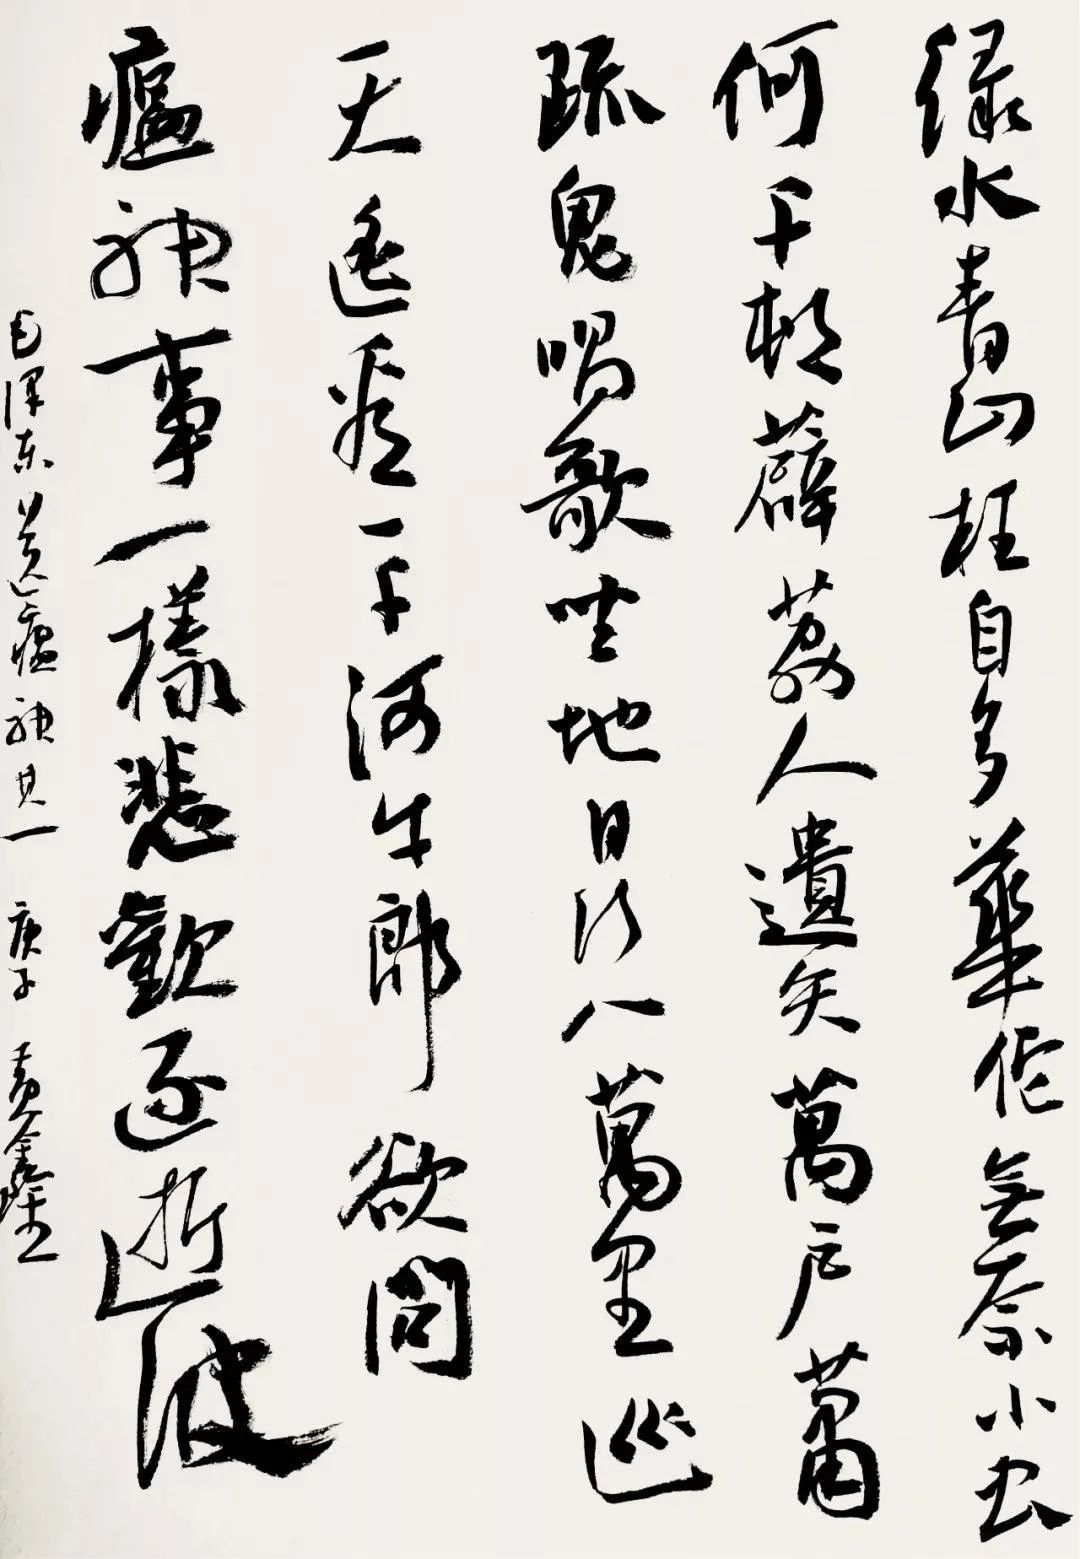 绿水青山枉自多華佗無奈小虫
何千村薜荔人遺矢萬户蕭
疏鬼唱歌坐地日行八萬里巡
天遥看一千河牛郎欲問
瘟神事一樣悲歡逐逝波
毛泽东送瘟神其一 庚子